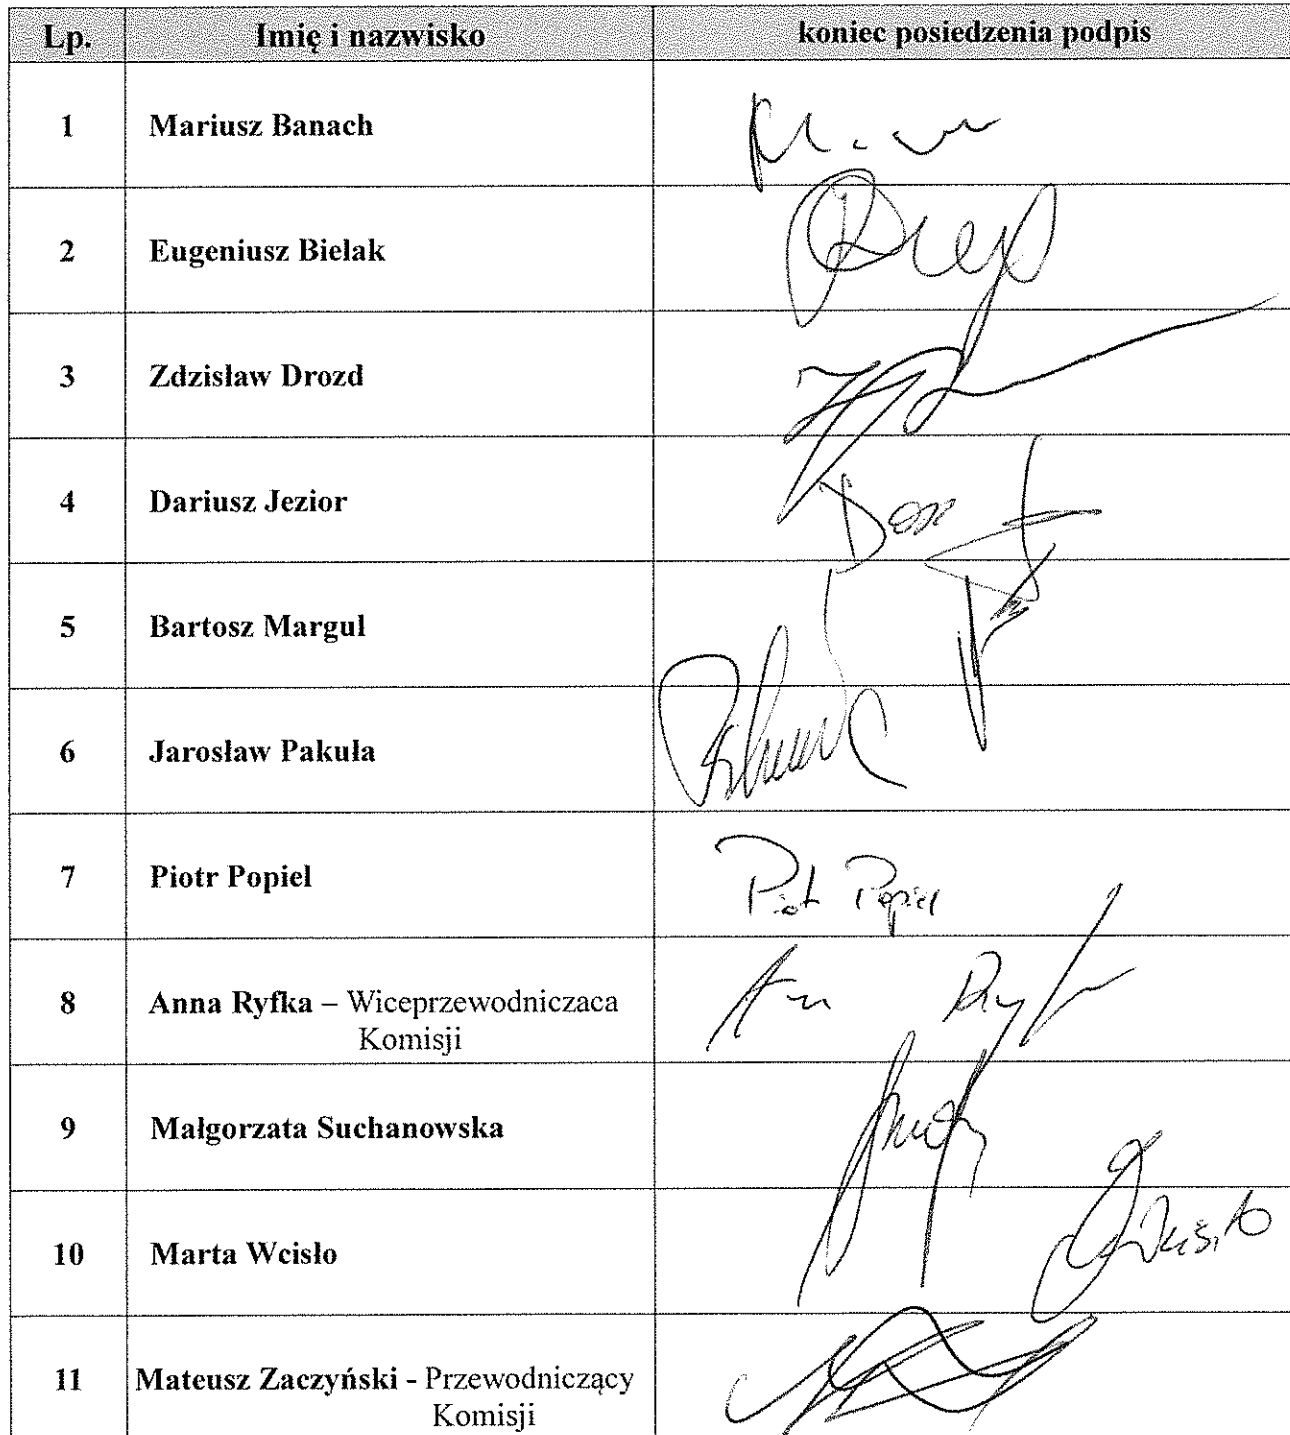 Lp. Imię i nazwisko koniec posiedzenia podpis
1 Mariusz Banach
2 Eugeniusz Bielak
3 Zdzisław Drozd
4 Dariusz Jezior
5 Bartosz Margul
6 Jarosław Pakuła
7 Piotr Popiel Piotr Popiel
8 Anna Ryfka – Wiceprzewodniczaca
Komisji
9 Małgorzata Suchanowska
10 Marta Wcisło Wcisło
11 Mateusz Zaczyński - Przewodniczący
Komisji